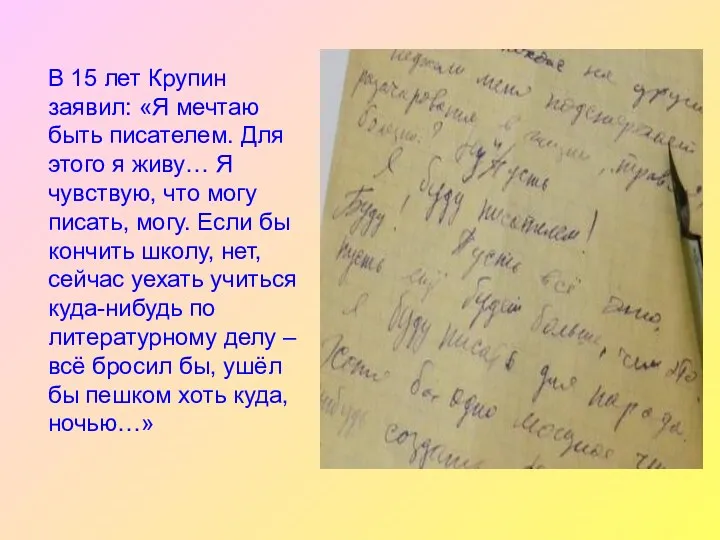 В 15 лет Крупин
заявил: «Я мечтаю
быть писателем. Для
этого я живу… Я
чувствую, что могу
писать, могу. Если бы
кончить школу, нет,
сейчас уехать учиться
куда-нибудь по
литературному делу –
всё бросил бы, ушёл
бы пешком хоть куда,
ночью…»
на други
меня подстерегает
разочарование в жизни,
Ну
Пусть
Я буду писателем!
Буду!
Пусть всё это,
пусть ещё будет больше, чем это
Я буду писать для народа.
Хотя бы одно мощное
нибудь создать